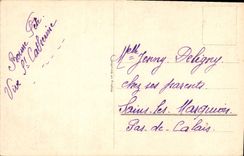 Bonne Fête
Ste Catherine
Vive
Melle Jenny Deligny
chez ses parents
Sains-les-Marquions
Pas-de-Calais